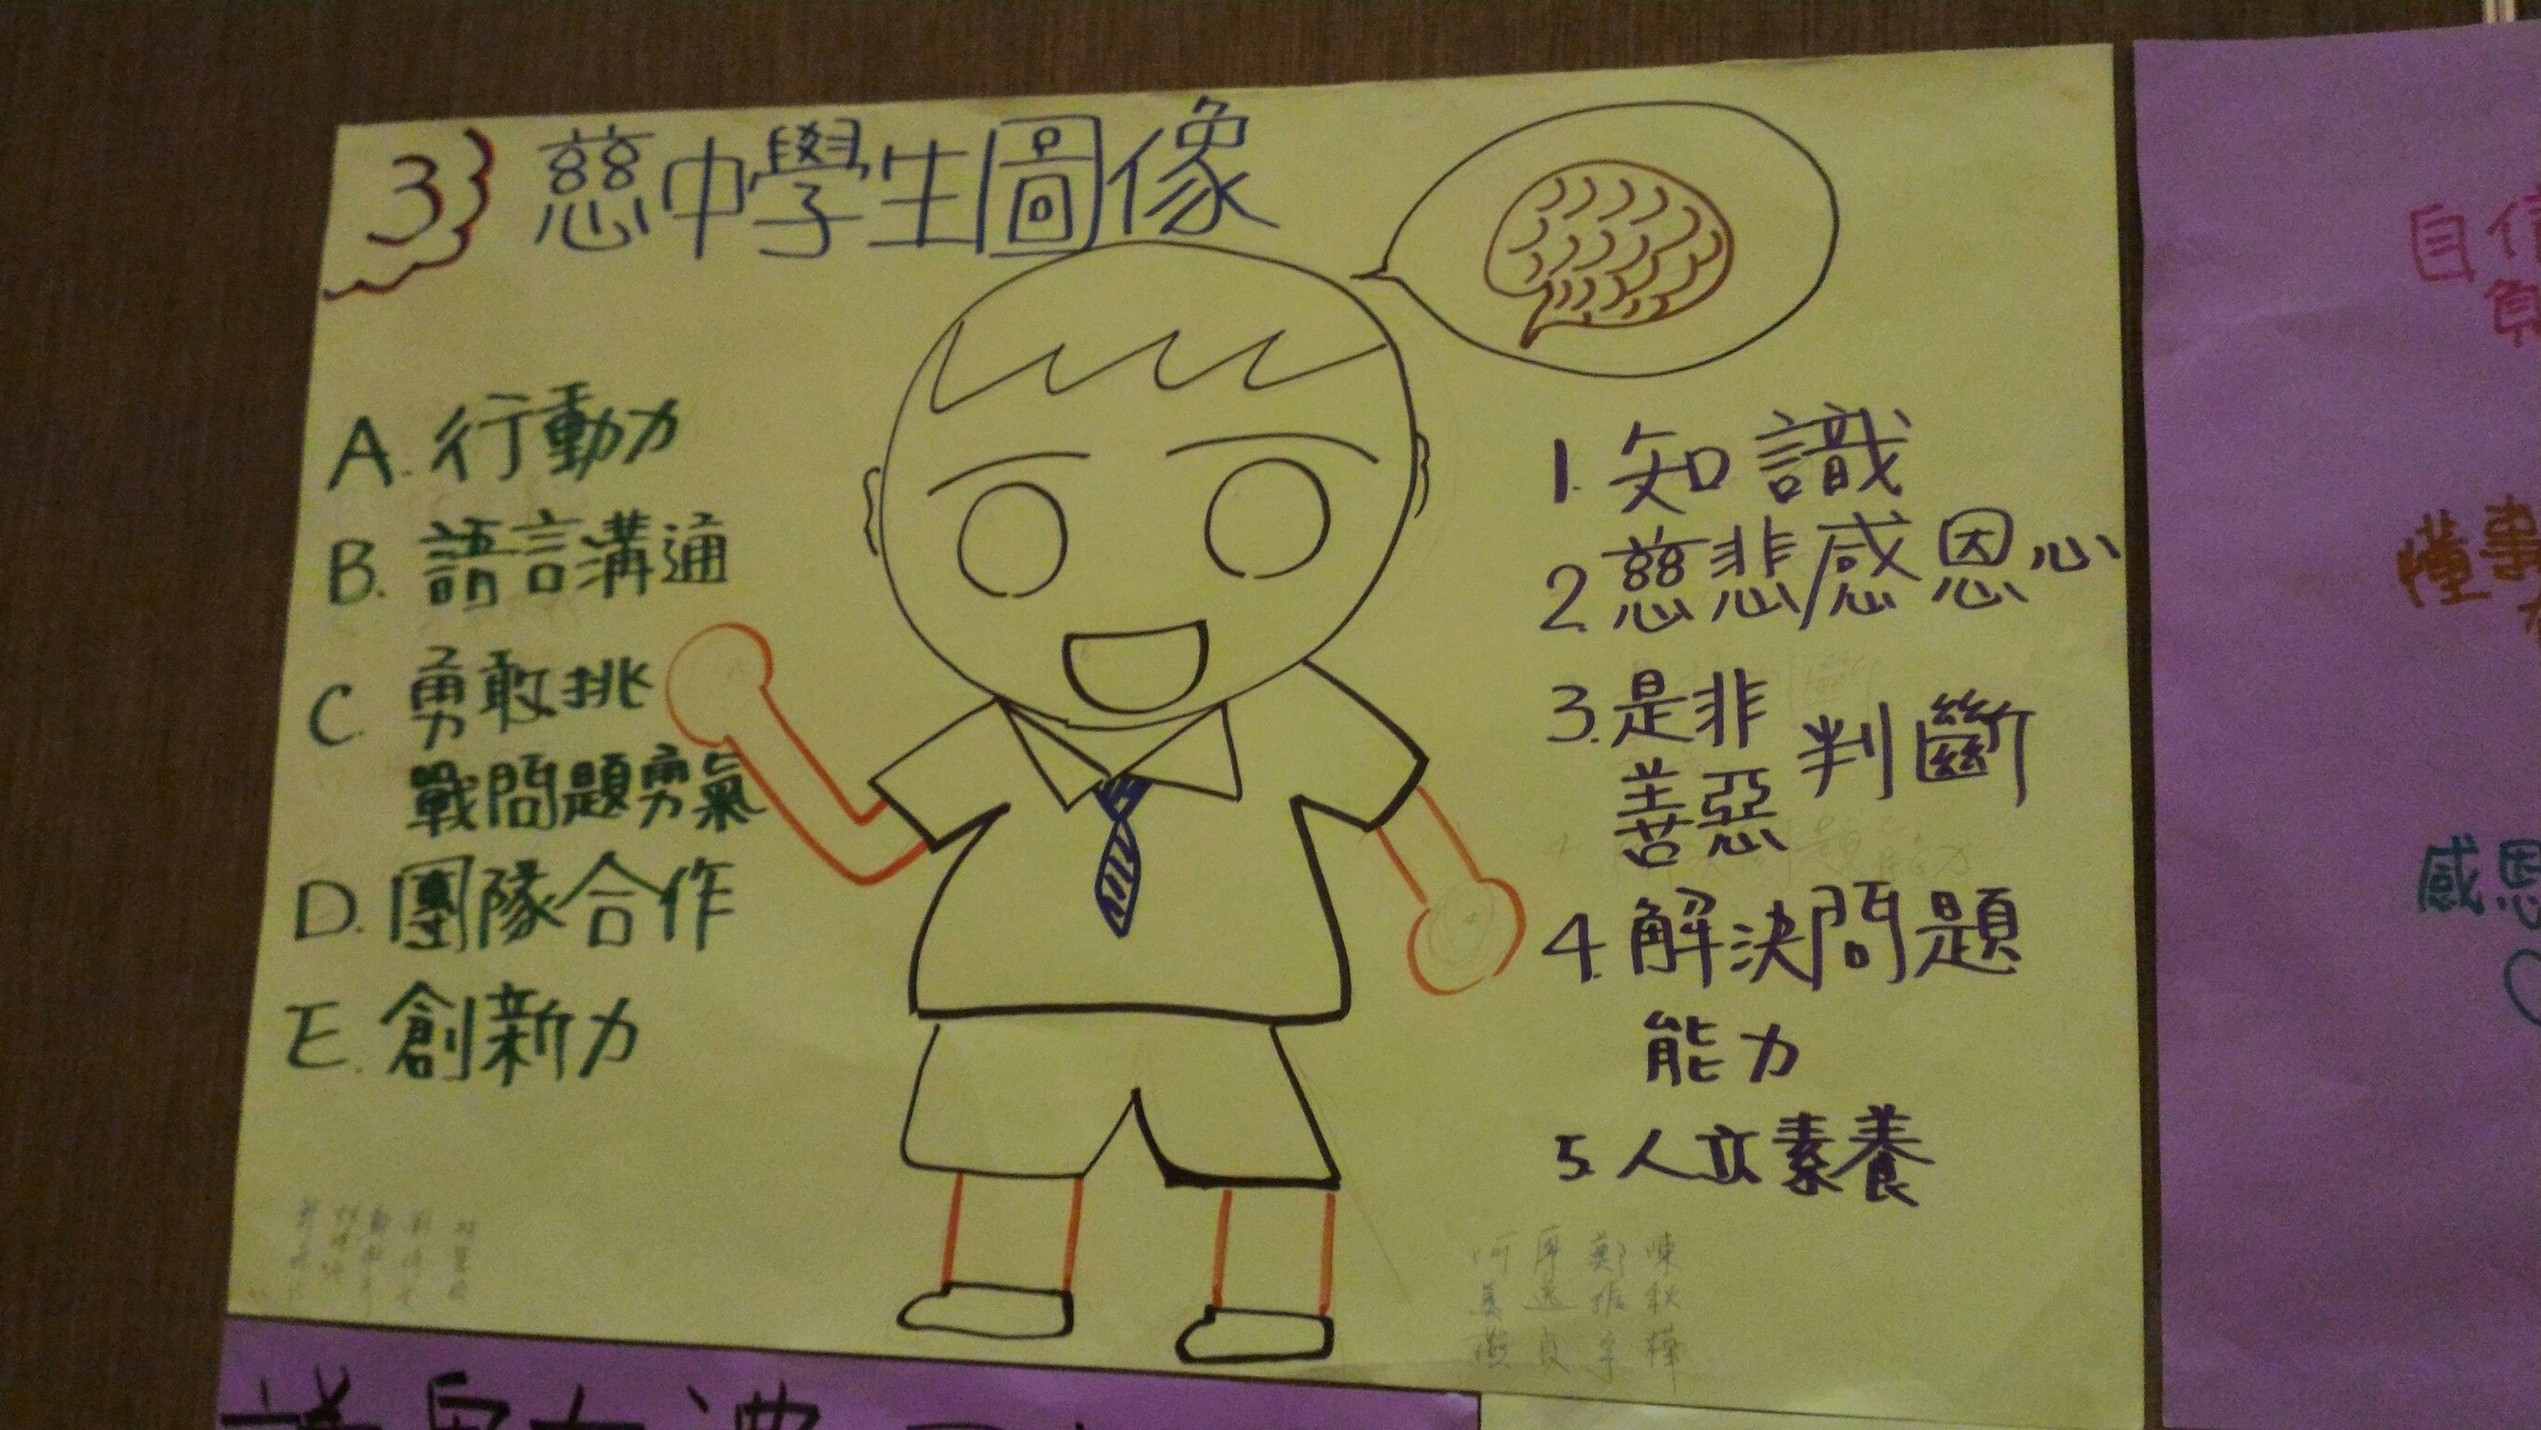 3 慈中學生圖像
A. 行動力
B. 語言溝通
C. 勇敢挑
戰問題勇氣
D. 團隊合作
E. 創新力
1. 知識
2. 慈悲/感恩心
3. 是非
善惡
判斷
4. 解決問題
能力
5. 人文素養
陳秋樺
自信
懂事
感恩